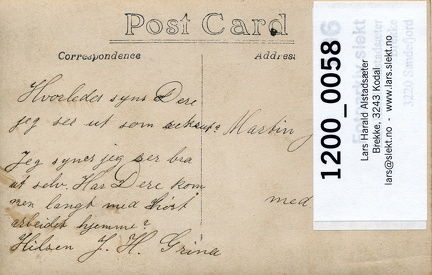 Post Card
Correspondence
Address
Hvorledes syns Dere
jeg ser ut som rekrut?
Martin
Jeg synes jeg ser bra
ut selv. Har Dere kom
men langt med
arbeidet hjemme?
Hilsen J. H. Grina
med
1200_0058
Lars Harald Alstadsæter
Brekke, 3243 Kodal
lars@slekt.no - www.lars.slekt.no